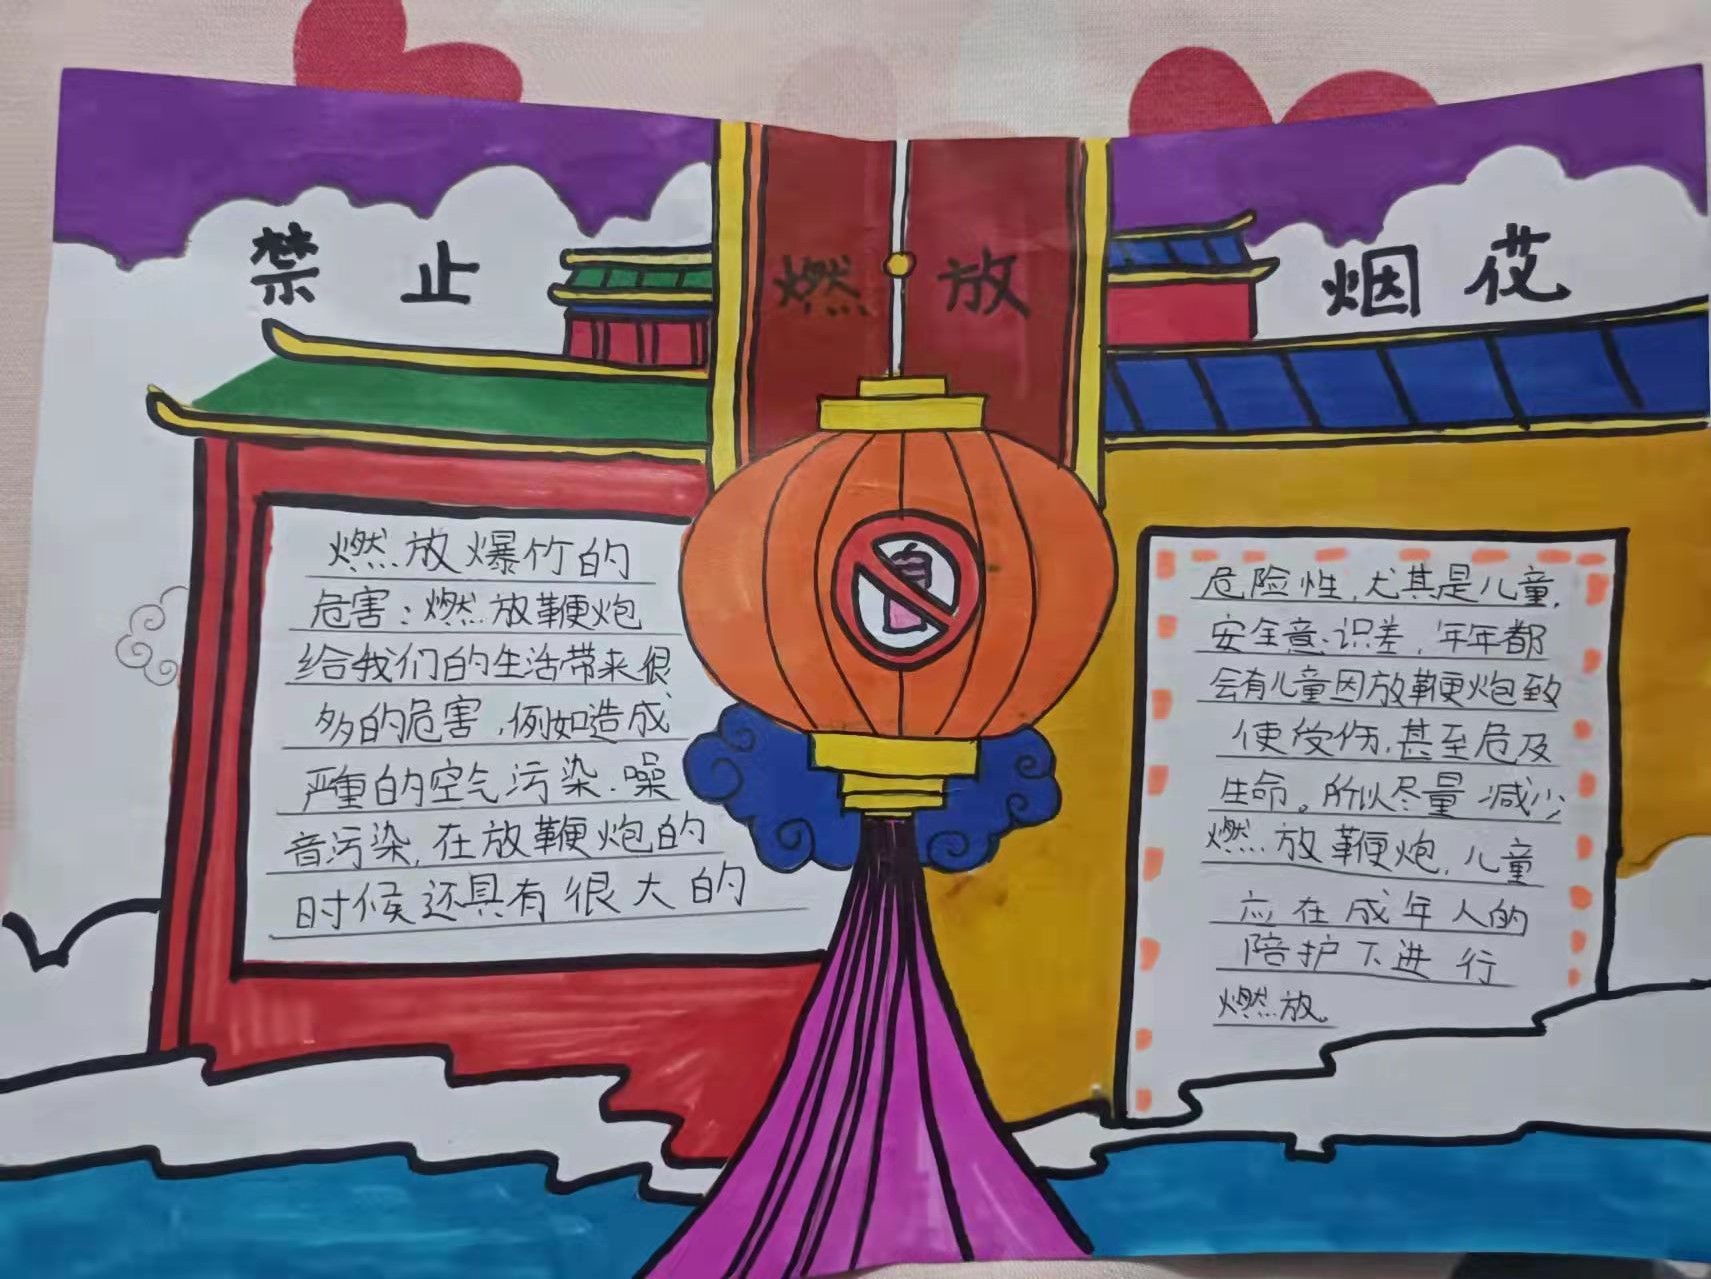 禁止燃放烟花
燃放爆竹的
危害：燃放鞭炮
给我们的生活带来很
多的危害，例如造成
严重的空气污染.噪
音污染，在放鞭炮的
时候还具有很大的
危险性，尤其是儿童，
安全意识差，年年都
会有儿童因放鞭炮致
使受伤，甚至危及
生命。所以尽量减少
燃放鞭炮，儿童
应在成年人的
陪护下进行
燃放。